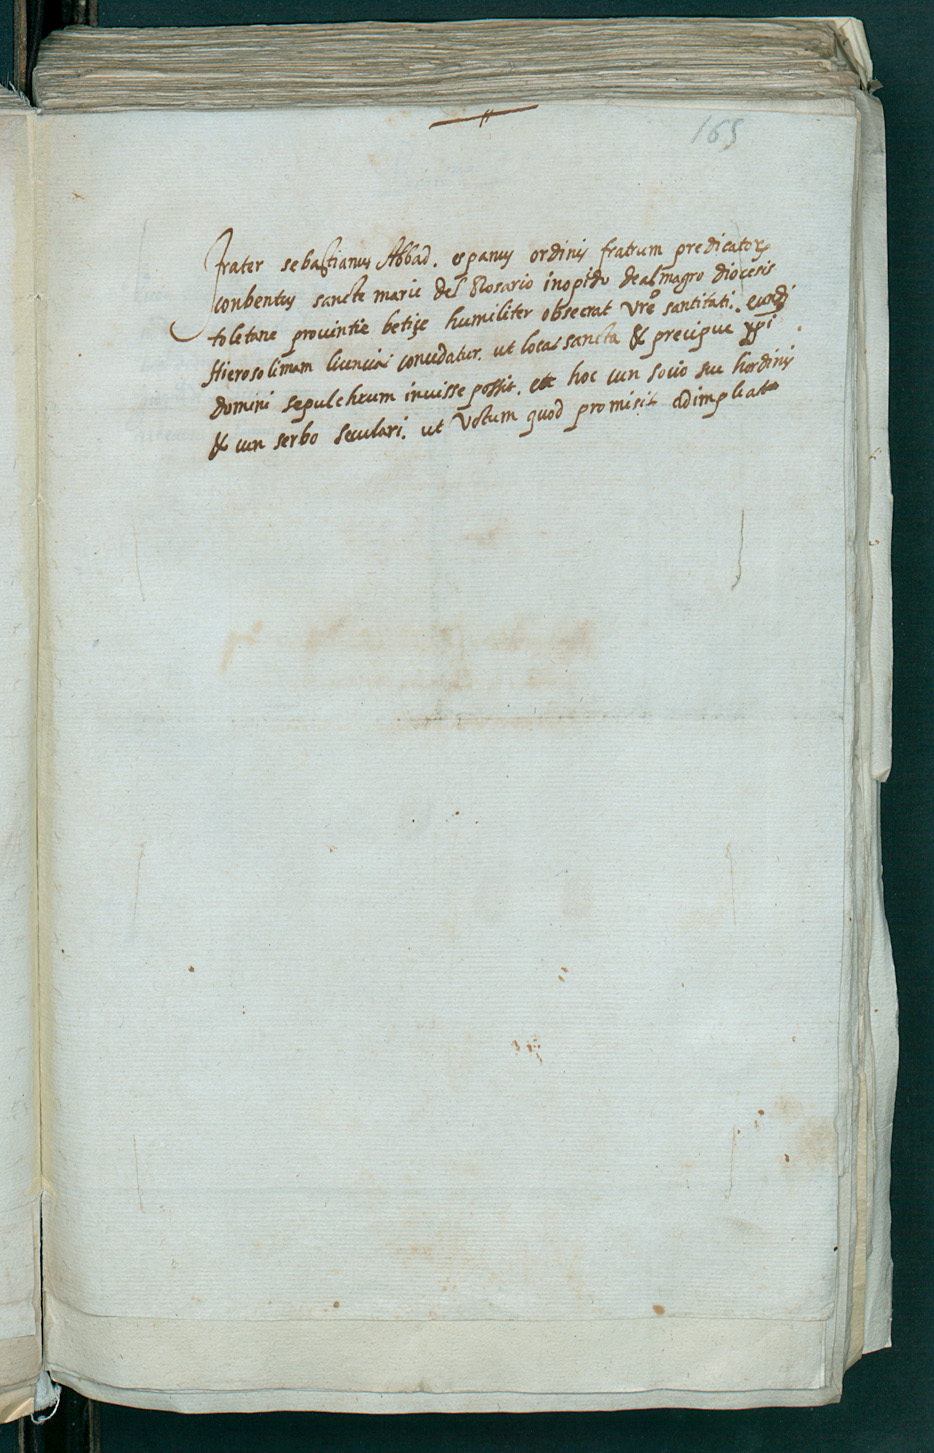 165
Frater sebastianus Abbad. espanus ordinis fratrum predicatorȝ
conbentus sancte marie del Rosario in opido de almagro diocesis
toletane provintie betice humiliter obsecrat vrẽ santitati. eundi
Hierosolimam licencia concedatur. ut loca sancta & precipue xp̃i
domini sepulchrum invisse possit. et hoc cun socio sue hordinis
& cun serbo seculari. ut votum quod promisit adimpleat